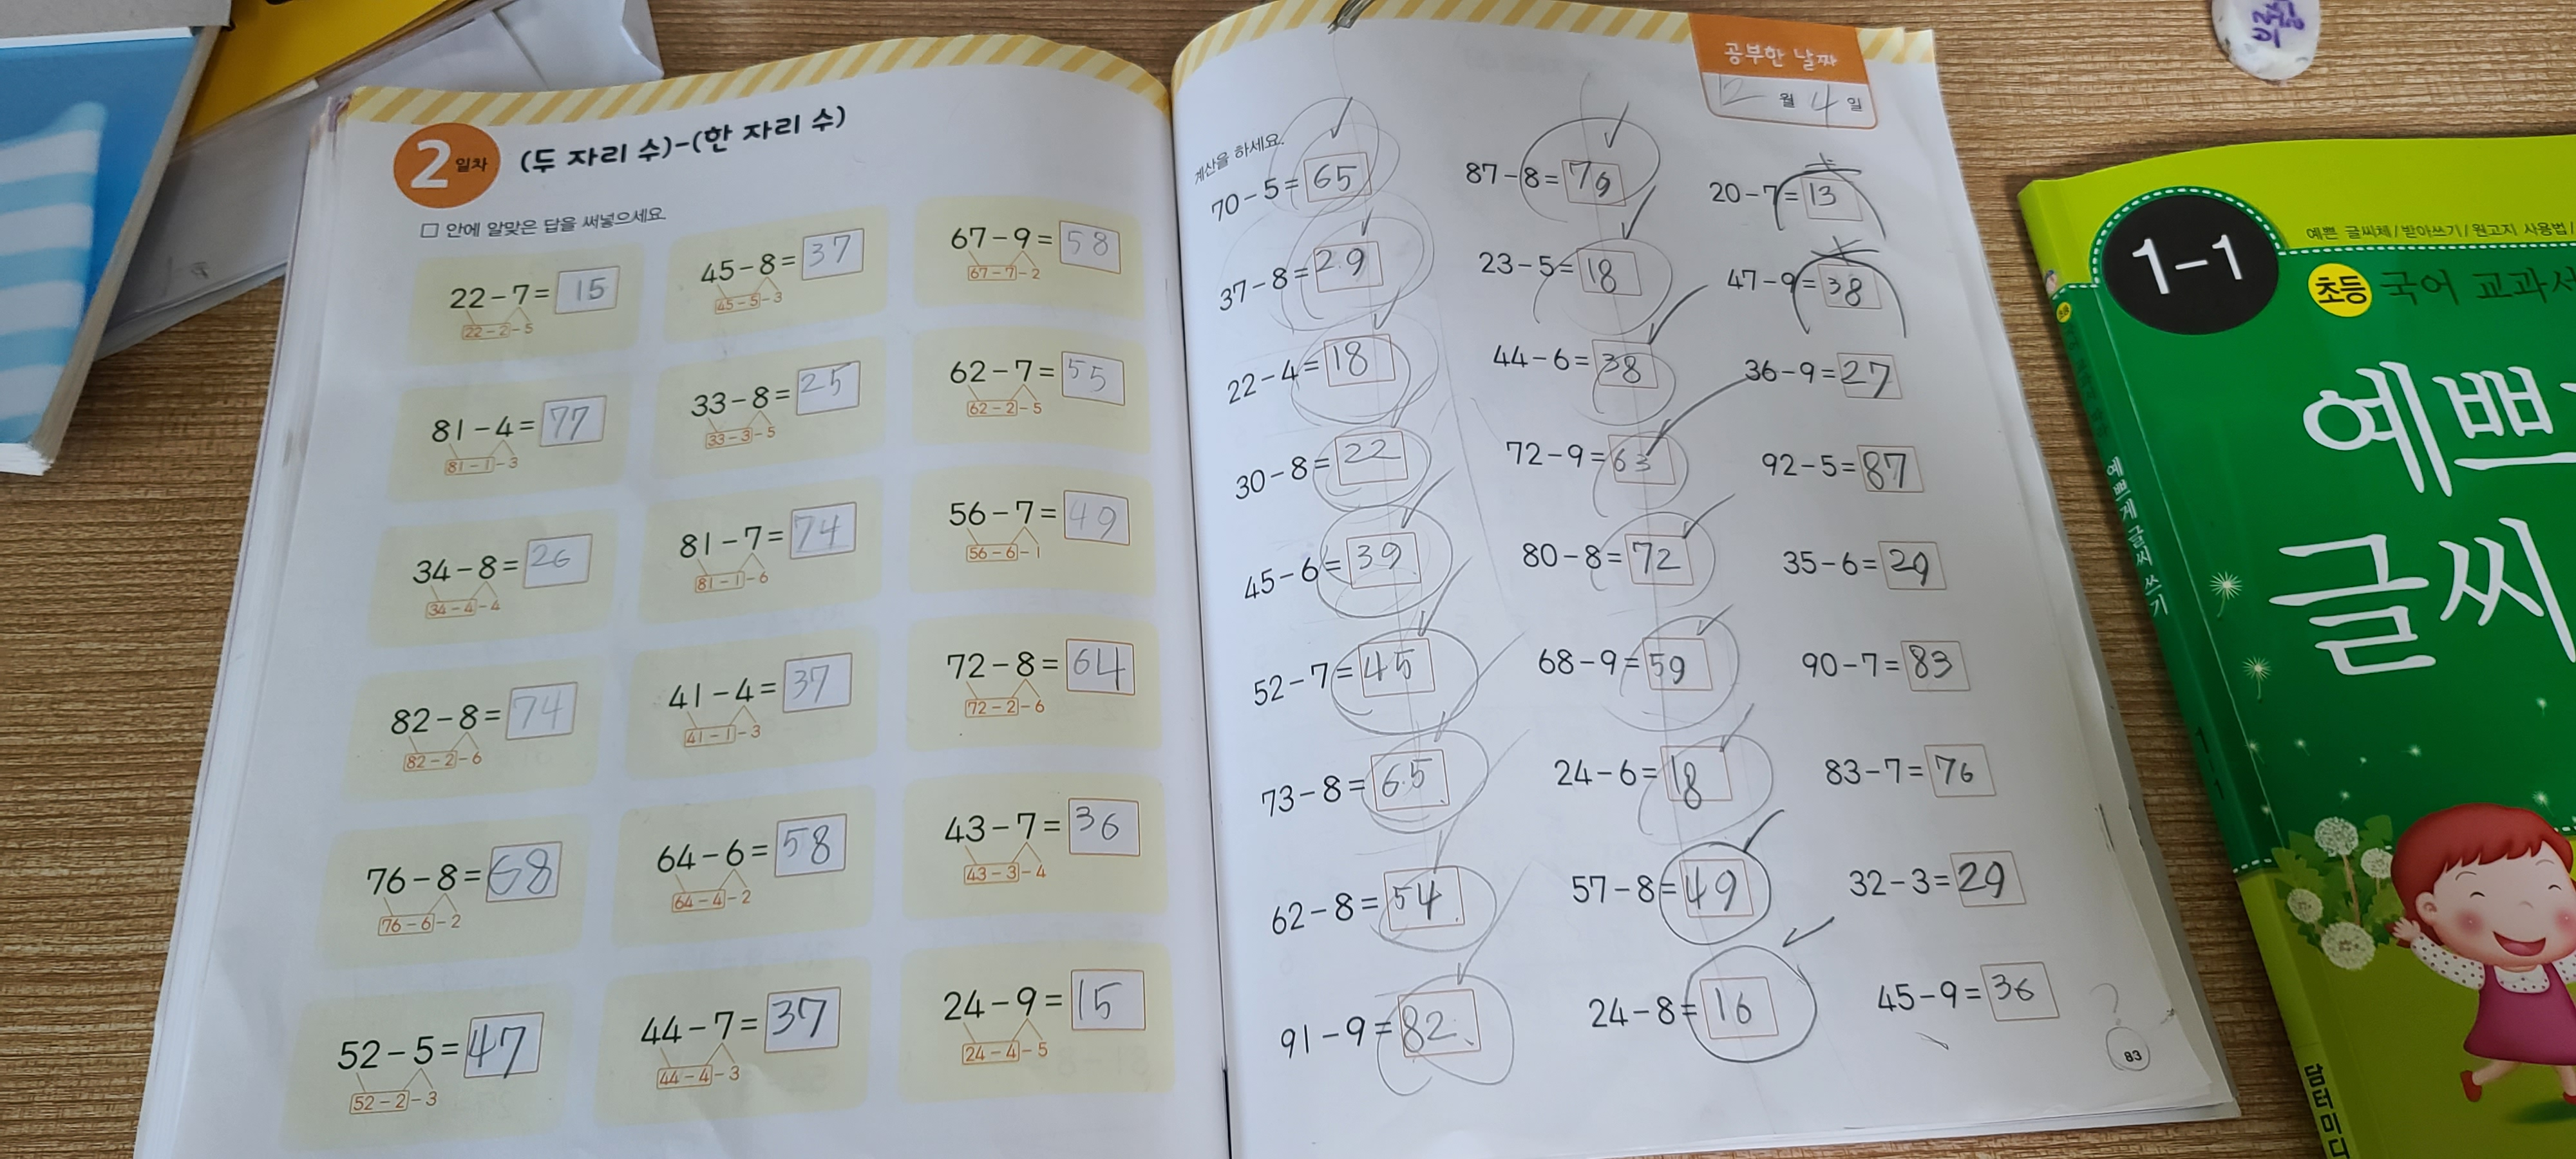 2 일차 (두 자리 수)-(한 자리 수)
□ 안에 알맞은 답을 써넣으세요.
22-7= 15
22-2-5
81-4= 77
81-1-3
34-8= 26
34-4-4
82-8= 74
82-2-6
76-8= 68
76-6-2
52-5= 47
52-2-3
45-8= 37
45-5-3
33-8= 25
33-3-5
81-7= 74
81-1-6
41-4= 37
41-1-3
64-6= 58
64-4-2
44-7= 37
44-4-3
67-9= 58
67-7-2
62-7= 55
62-2-5
56-7= 49
56-6-1
72-8= 64
72-2-6
43-7= 36
43-3-4
24-9= 15
24-4-5
공부한 날짜
12 월 4 일
계산을 하세요.
70-5= 65
37-8= 29
22-4= 18
30-8= 22
45-6= 39
52-7= 45
73-8= 65
62-8= 54
91-9= 82
87-8= 79
23-5= 18
44-6= 38
72-9= 63
80-8= 72
68-9= 59
24-6= 18
57-8= 49
24-8= 16
20-7= 13
47-9= 38
36-9= 27
92-5= 87
35-6= 29
90-7= 83
83-7= 76
32-3= 29
45-9= 36
?
83
예쁜 글씨체/받아쓰기/원고지 사용법/
1-1
초등 국어 교과서
예쁘
글씨
예쁘게 글씨 쓰기
1-1
담터미디